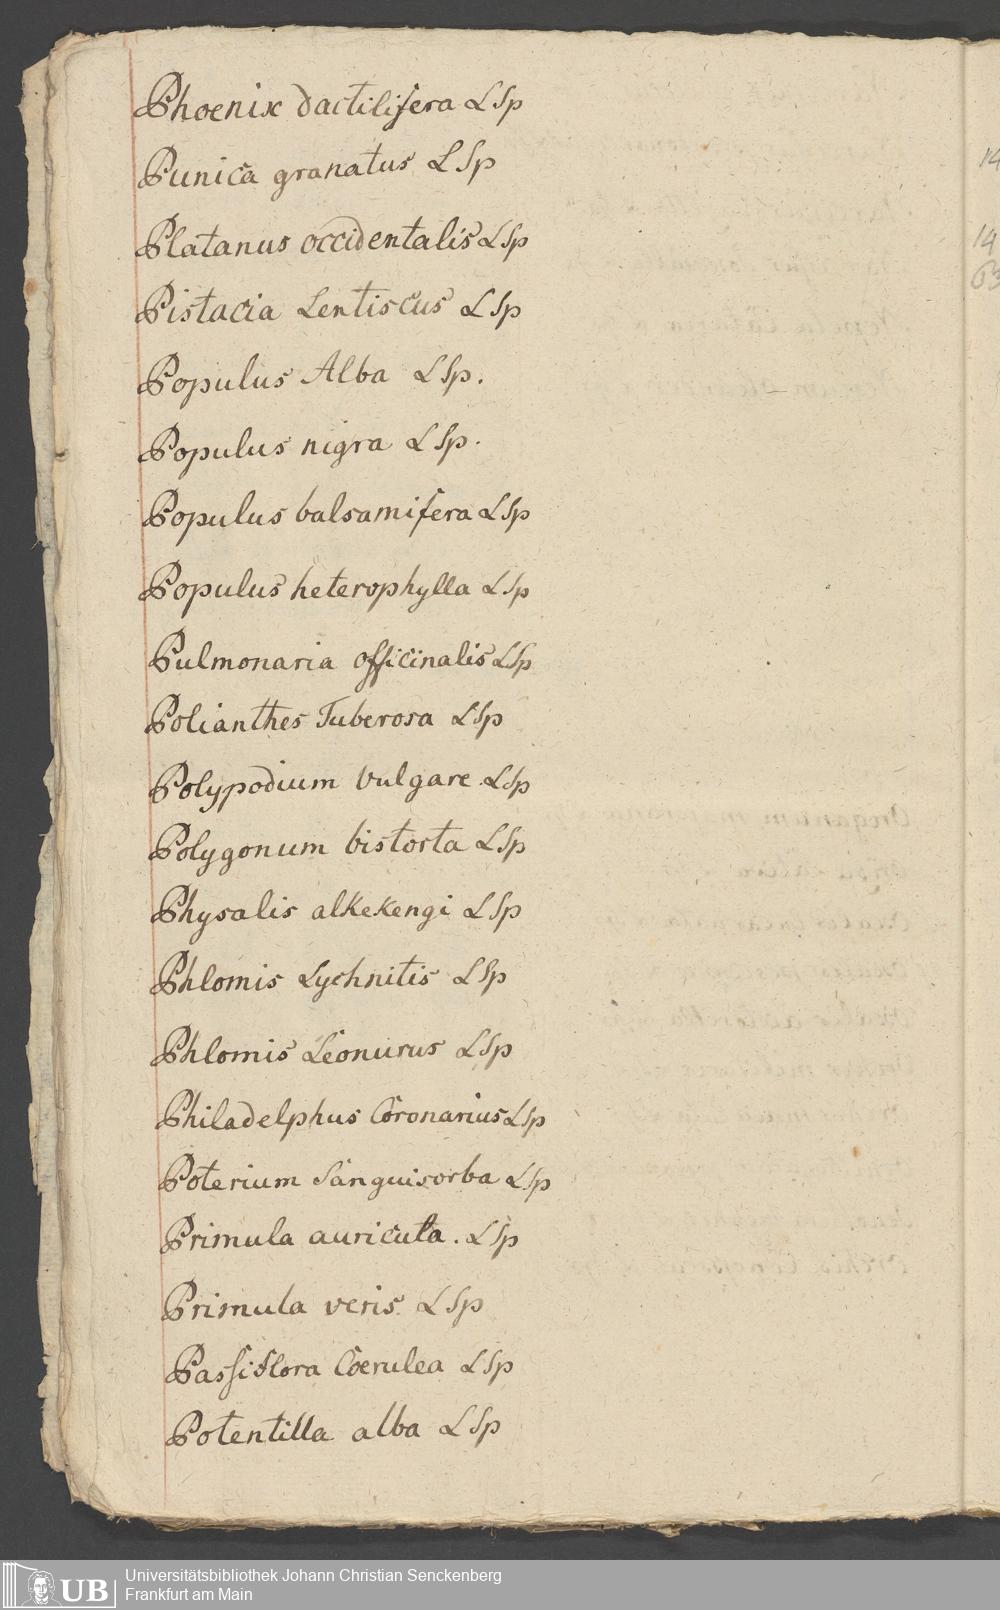 Phoenix dactilifera LSp
Punica granatus LSp
Platanus occidentalis LSp
Pistacia Lentiscus LSp
Populus Alba LSp.
Populus nigra LSp.
Populus balsamifera LSp
Populus heterophylla LSp
Pulmonaria officinalis LSp
Polianthes Tuberosa LSp
Polypodium vulgare LSp
Polygonum bistorta LSp
Physalis alkekengi LSp
Phlomis Lychnitis LSp
Phlomis Leonurus LSp
Philadelphus Coronarius LSp
Poterium Sanguisorba LSp
Primula auricula. LSp
Primula veris LSp
Passiflora Coerulea LSp
Potentilla alba LSp
14
14
63
UB
Universitätsbibliothek Johann Christian Senckenberg
Frankfurt am Main